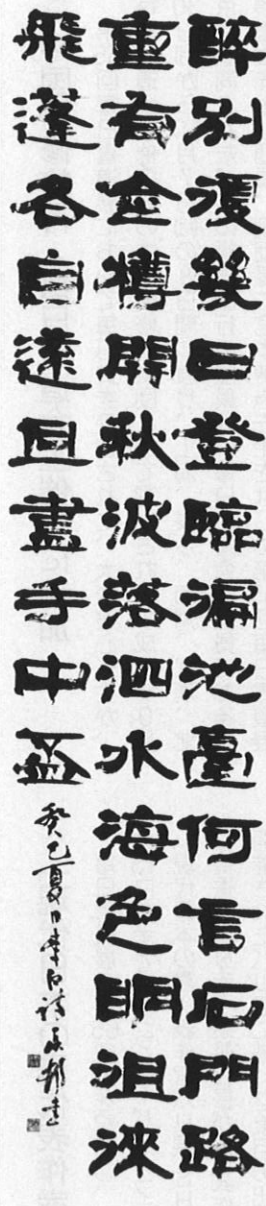 醉別復幾日登臨徧池臺何言石門路
重有金樽開秋波落泗水海色明徂徠
飛蓬各自遠且盡手中盃
癸巳夏日李白詩